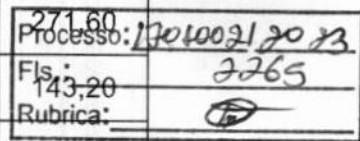 271,60
Processo: 17010021 2023
Fls.: 2265
143,20
Rubrica: